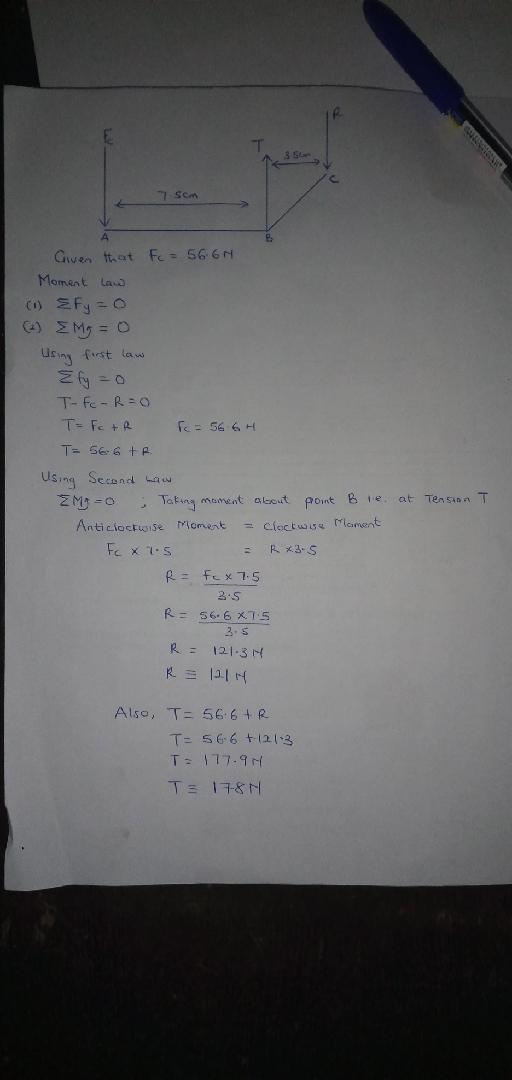 Fc
R
T
3.5cm
C
7.5cm
A
B
Given that Fc = 56.6N
Moment Law
(1) ΣFy = 0
(2) ΣMg = 0
Using first law
Σfy = 0
T- Fc - R = 0
T = Fc + R Fc = 56.6 N
T = 56.6 + R
Using Second Law
ΣMg = 0 ; Taking moment about point B i.e. at Tension T
Anticlockwise Moment = Clockwise Moment
Fc x 7.5 = R x 3.5
R = Fc x 7.5
3.5
R = 56.6 x 7.5
3.5
R = 121.3N
R ≡ 121 N
Also, T = 56.6 + R
T = 56.6 + 121.3
T = 177.9N
T ≡ 178N